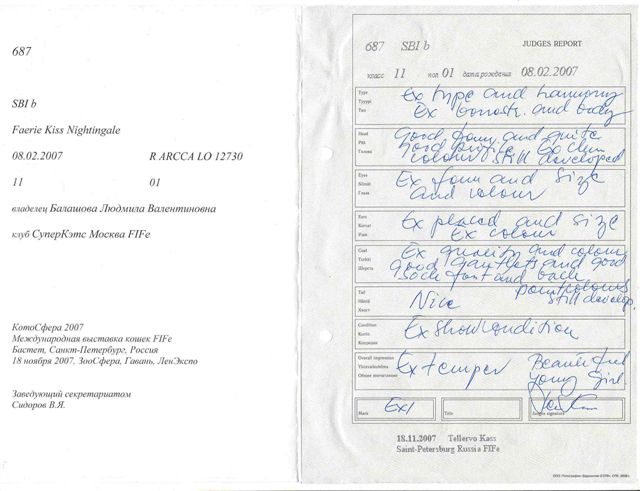 687
SBI b
Faerie Kiss Nightingale
08.02.2007 R ARCCA LO 12730
11 01
владелец Балашова Людмила Валентиновна
клуб СуперКэтс Москва FIFe
КотоСфера 2007
Международная выставка кошек FIFe
Бастет, Санкт-Петербург, Россия
18 ноября 2007, ЗооСфера, Гавань, ЛенЭкспо
Заведующий секретариатом
Сидоров В.Я.
JUDGES REPORT
687 SBI b
класс 11 пол 01 дата рождения 08.02.2007
Type
Tyyppi
Тип
Ex type and harmony
Ex constr. and body
Head
Pää
Голова
Good form and quite
good profile Ex chin
colour still developed
Eyes
Silmät
Глаза
Ex form and size
and colour
Ears
Korvat
Уши
Ex placed and size
Ex colour
Coat
Turkki
Шерсть
Ex quality and colour
good gauntlets and good
sock font and back
pointcolours
still develop.
Tail
Häntä
Хвост
Nice
Condition
Kunto
Кондиция
Ex showcondition
Overall impression
Yleisvaikutelma
Общее впечатление
Ex temper
Beautiful
yong girl.
Mark
Ex1
Title
Judges signature
18.11.2007 Tellervo Kass
Saint-Petersburg Russia FIFe